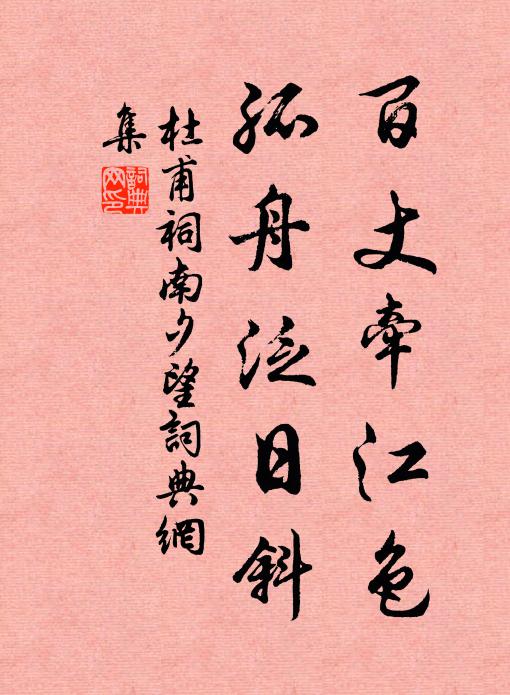 百丈牽江色
孤舟泛日斜
杜甫祠南夕望詞典網
集
詞典網印